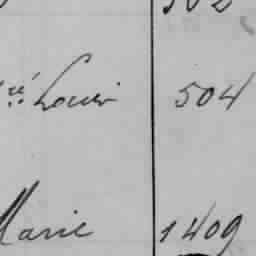 Louis 504
Marie 1409